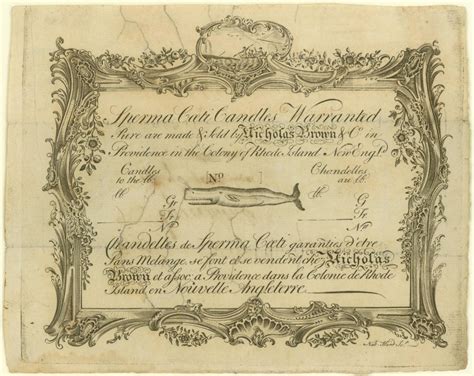 Sperma Cœti Candles Warranted
Pure are made & sold by Nicholas Brown & Co. in
Providence in the Colony of Rhode Island New Engd.
Candles No Chandelles
to the lb. are lb.
lb lb. Gr.
Tr. Tr.
N.
Chandelles de Sperma Cœti garanties d'etre
Sans Melange, se font et se vendent chez Nicholas
Brown et assoc. a Providence dans la Colonie de Rhode
Island en Nouvelle Angleterre.